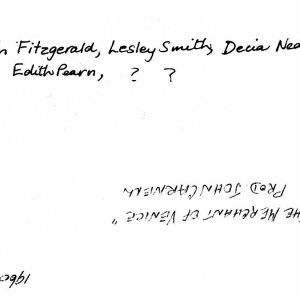 n Fitzgerald, Lesley Smith, Decia Nea
Edith Pearn, ? ?
HE MERCHANT OF VENICE"
PROD. JOHN CARNIERN
1960